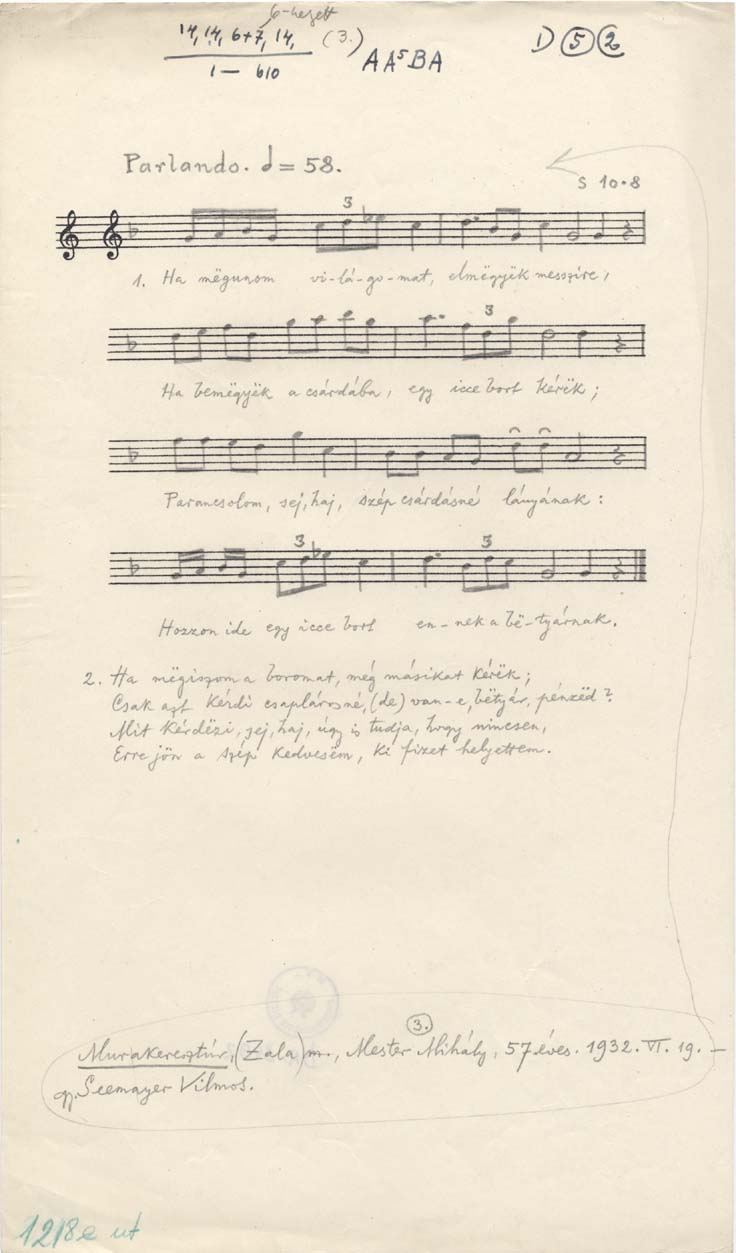 6-helyett
14, 14, 6+7, 14, (3.)
1 — b10
A A⁵ B A
D 5 2
Parlando. = 58.
S 10.8
3
1. Ha mëgunom vi-lá-go-mat, elmëgyëk messzire,
3
Ha bemëgyëk a csárdába, egy icce bort kérëk;
Parancsolom, sej, haj, szép csárdásné lányának:
3 3
Hozzon ide egy icce bort en-nek a bë-tyárnak.
2. Ha mëgiszom a boromat, még másikat kérëk;
Csak azt kérdi csaplárosné, (de) van-e, bëtyár, pénzëd?
Mit kérdëzi, sej, haj, úgy is tudja, hogy nincsen,
Erre jön a szép kedvesëm, ki fizet helyettem.
3.
Murakeresztúr, (Zala) m., Mester Mihály, 57 éves. 1932. VI. 19. –
gy. Seemayer Vilmos.
1218e ut